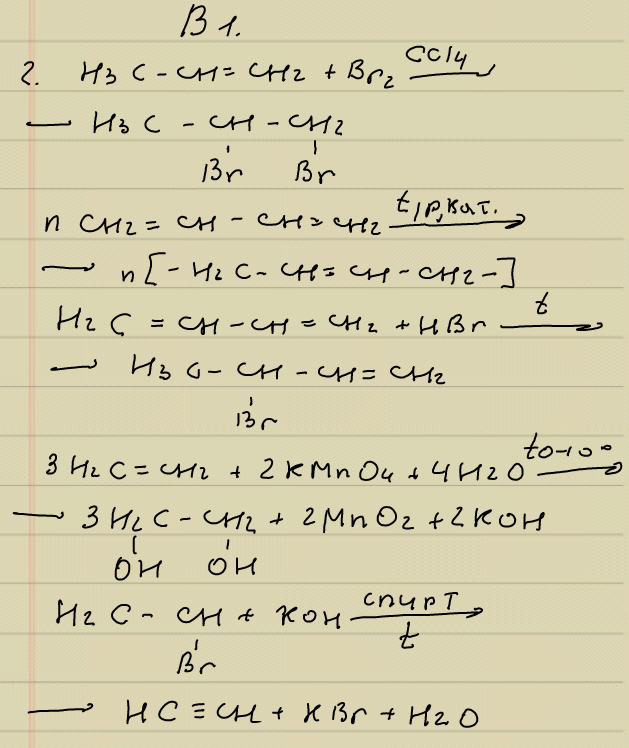 В 1.
2. H3C - CH = CH2 + Br2 CCl4 →
→ H3C - CH - CH2
Br Br
n CH2 = CH - CH = CH2 t,p,кат. →
→ n[- H2C - CH = CH - CH2 -]
H2C = CH - CH = CH2 + HBr t →
→ H3C - CH - CH = CH2
Br
3H2C = CH2 + 2KMnO4 + 4H2O t0-10° →
→ 3H2C - CH2 + 2MnO2 + 2KOH
OH OH
H2C - CH + KOH спирт t →
Br
→ HC ≡ CH + KBr + H2O